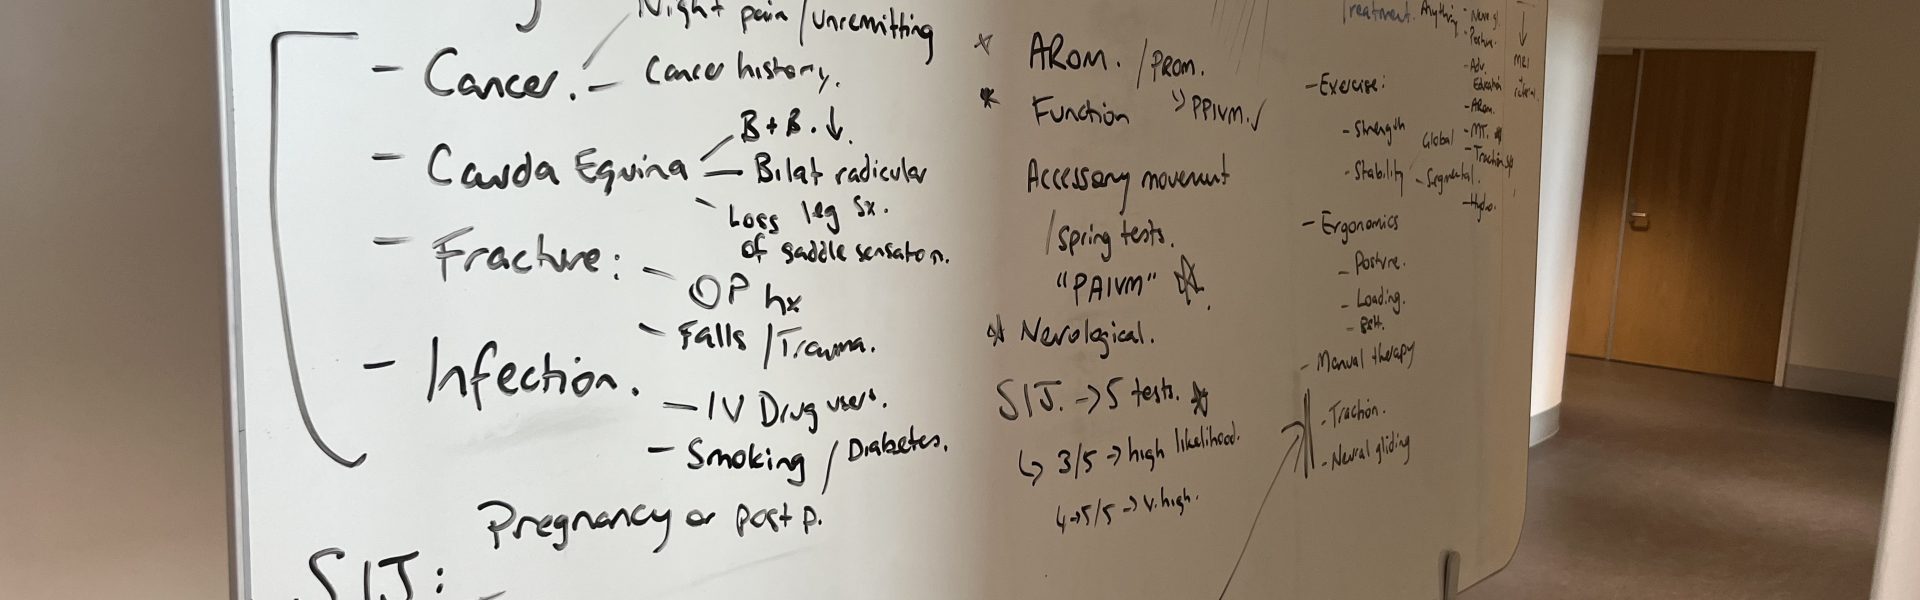 Night pain / unremitting
- Cancer. - Cancer history.
- Cauda Equina
B + B. ↓.
- Bilat radicular
leg Sx.
Loss
of saddle sensation.
- Fracture:
- OP hx
- Falls / Trauma.
- Infection.
- IV Drug users.
- Smoking / Diabetes.
Pregnancy or post p.
SIJ:
AROM. / PROM.
Function
PPIVM. ✓
Accessory movement
/ Spring tests.
"PAIVM"
Neurological.
SIJ. → 5 tests.
↳ 3/5 → high likelihood.
4→5/5 → v. high.
Treatment. Anything
- Exercise:
- Strength
- Stability
Global
- Segmental.
- Ergonomics
- Posture.
- Loading.
- Manual therapy
- Traction.
- Neural gliding
- Posture.
- Adv.
Education
- AROM.
- MT.
- Traction
- Hydro.
↓
MRI
referral.